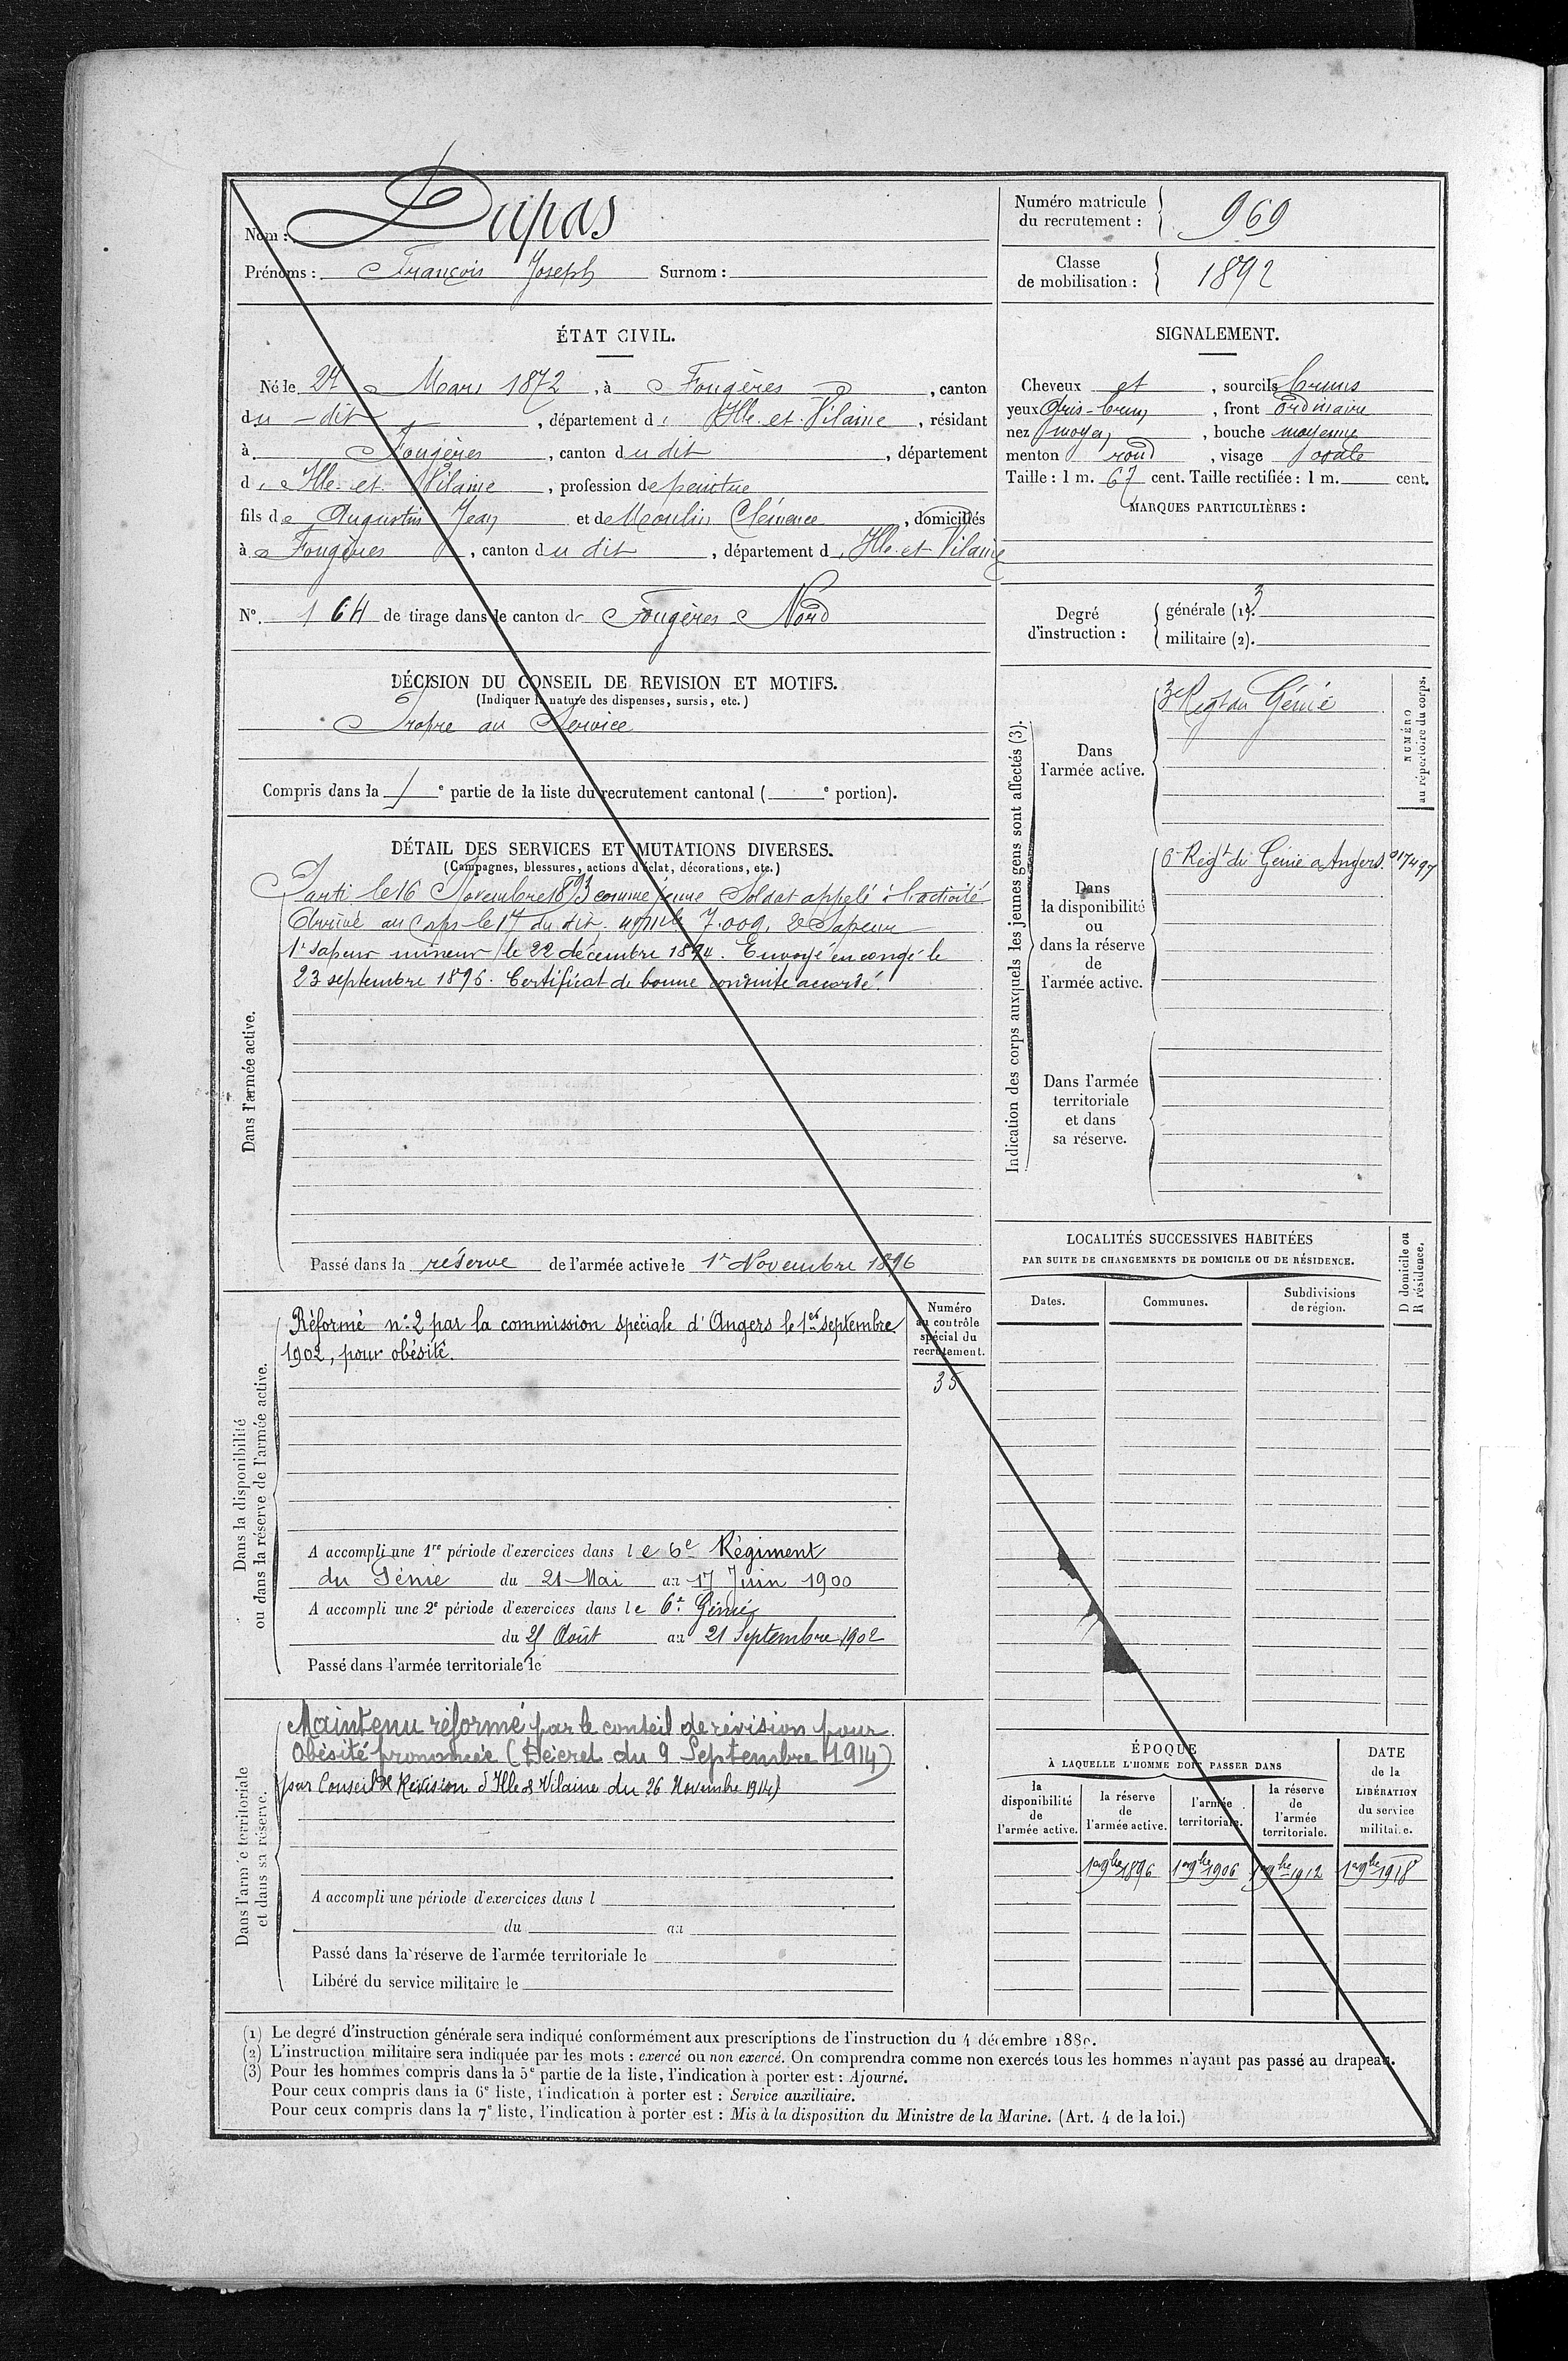 Nom : Dupas
Prénoms : François Joseph Surnom :
Numéro matricule du recrutement : 969
Classe de mobilisation : 1892
ÉTAT CIVIL.
Né le 27 Mars 1872, à Fougères, canton
du -dit, département d'Ille-et-Vilaine, résidant
à Fougères, canton du dit, département
d'Ille-et-Vilaine, profession de peintre
fils de Augustin Jean et de Moulin Clémence, domiciliés
à Fougères, canton du dit, département d'Ille-et-Vilaine
N° 164 de tirage dans le canton de Fougères Nord
SIGNALEMENT.
Cheveux et, sourcils bruns
yeux Gris-brun, front ordinaire
nez moyen, bouche moyenne
menton rond, visage ovale
Taille : 1 m. 67 cent. Taille rectifiée : 1 m. cent.
MARQUES PARTICULIÈRES :
Degré d'instruction :
générale (1). 3
militaire (2).
DÉCISION DU CONSEIL DE REVISION ET MOTIFS.
(Indiquer la nature des dispenses, sursis, etc.)
Propre au Service
Compris dans la 1e partie de la liste du recrutement cantonal ( e portion).
DÉTAIL DES SERVICES ET MUTATIONS DIVERSES.
(Campagnes, blessures, actions d'éclat, décorations, etc.)
Dans l'armée active.
Parti le 16 Novembre 1893 comme jeune Soldat appelé à l'activité
Arrivé au Corps le 17 du dit. 7.009. 2e Sapeur
1er sapeur mineur le 22 décembre 1894. Envoyé en congé le
23 septembre 1896. Certificat de bonne conduite accordé.
Passé dans la réserve de l'armée active le 1er Novembre 1896
Indication des corps auxquels les jeunes gens sont affectés (3).
NUMÉRO au répertoire du corps.
Dans l'armée active.
3e Regt du Génie
Dans la disponibilité ou dans la réserve de l'armée active.
6e Régt du Génie a Angers. 017497
Dans l'armée territoriale et dans sa réserve.
LOCALITÉS SUCCESSIVES HABITÉES
PAR SUITE DE CHANGEMENTS DE DOMICILE OU DE RÉSIDENCE.
Dates. Communes. Subdivisions de région. D domicile ou R résidence.
Dans la disponibilité ou dans la réserve de l'armée active.
Réformé n°2 par la commission spéciale d'Angers le 1er septembre
1902, pour obésité.
Numéro au contrôle spécial du recrutement.
35
A accompli une 1re période d'exercices dans le 6e Régiment
du Génie du 21 Mai au 17 Juin 1900
A accompli une 2e période d'exercices dans le 6e Génie
du 25 Août au 21 Septembre 1902
Passé dans l'armée territoriale le
Dans l'armée territoriale et dans sa réserve.
Maintenu réformé par le conseil de révision pour
Obésité prononcée (Décret du 9 Septembre 1914)
par Conseil de Révision d'Ille & Vilaine du 26 Novembre 1914)
A accompli une période d'exercices dans l
du au
Passé dans la réserve de l'armée territoriale le
Libéré du service militaire le
ÉPOQUE
À LAQUELLE L'HOMME DOIT PASSER DANS
la disponibilité de l'armée active.
la réserve de l'armée active.
l'armée territoriale.
la réserve de l'armée territoriale.
DATE de la LIBÉRATION du service militaire.
1er 9bre 1896 1er 9bre 1906 1er 9bre 1912 1er 9bre 1918
(1) Le degré d'instruction générale sera indiqué conformément aux prescriptions de l'instruction du 4 décembre 1889.
(2) L'instruction militaire sera indiquée par les mots : exercé ou non exercé. On comprendra comme non exercés tous les hommes n'ayant pas passé au drapeau.
(3) Pour les hommes compris dans la 5e partie de la liste, l'indication à porter est : Ajourné.
Pour ceux compris dans la 6e liste, l'indication à porter est : Service auxiliaire.
Pour ceux compris dans la 7e liste, l'indication à porter est : Mis à la disposition du Ministre de la Marine. (Art. 4 de la loi.)